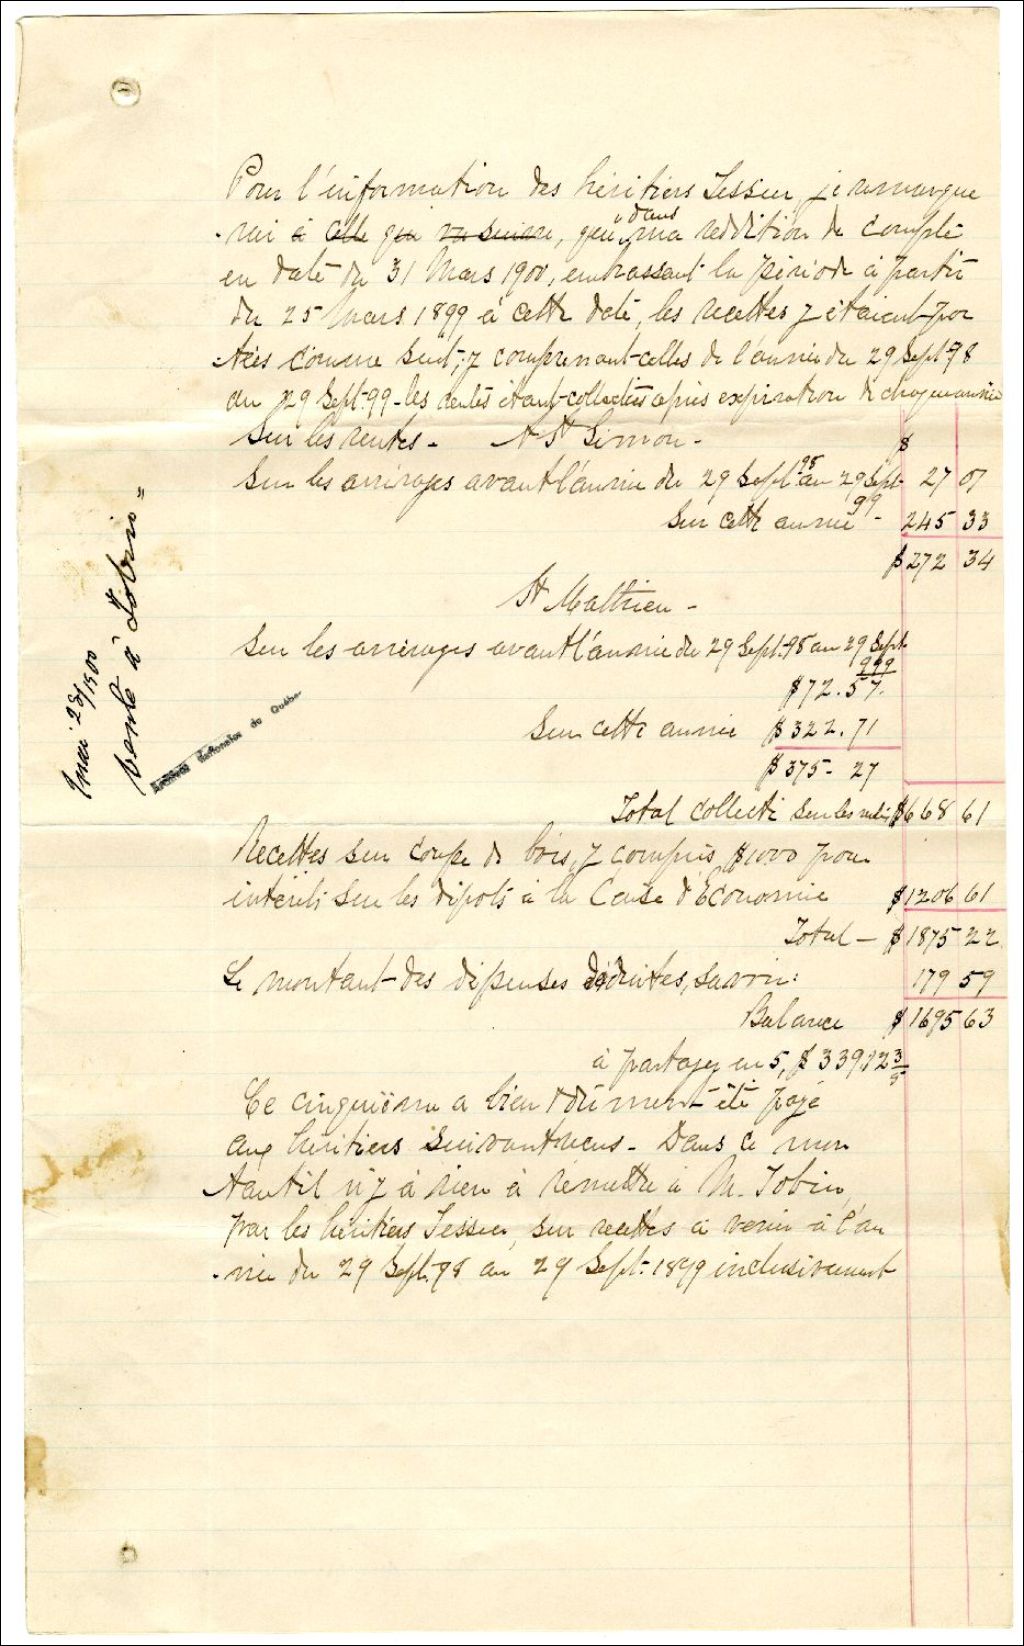 Pour l'information des héritiers Tessier, je remarque
-rai à celle qui va suivre, que dans ma reddition de compte
en date du 31 Mars 1900, embrassant la période à partir
du 25 Mars 1899 à cette date, les recettes y étaient por
-tées comme suit; y comprenant celles de l'année du 29 Sept. 98
au 29 Sept. 99 - les rentes étant collectées après expiration de chaque année
Sur les rentes - A St Simon - $
Sur les arrérages avant l'année du 29 Sept. 98 au 29 Sept. 99 27 07
Sur cette année - 245 33
$272 34
St Mathieu -
Sur les arrérages avant l'année du 29 Sept. 98 au 29 Sept.
$72.57.
Sur cette année $322.71
$375-27
Total collecté sur les rentes $668 61
Recettes sur coupe de bois, y compris $1000 pour
intérêts sur les dépôts à la Caisse d'Économie $1206 61
Total - $1875 22
Le montant des dépenses déduites, savoir: 179 59
Balance $1695 63
à partager en 5, $339.12 3/5
Ce cinquième a bien & dûment été payé
aux héritiers suivant reçus - Dans ce mon
-tant il n'y a rien à remettre à M. Tobin,
par les héritiers Tessier, sur recettes à venir à l'an
-née du 29 Sept. 98 au 29 Sept. 1899 inclusivement
mai 28/1900
vente à Tobin =
Archives Nationales du Québec